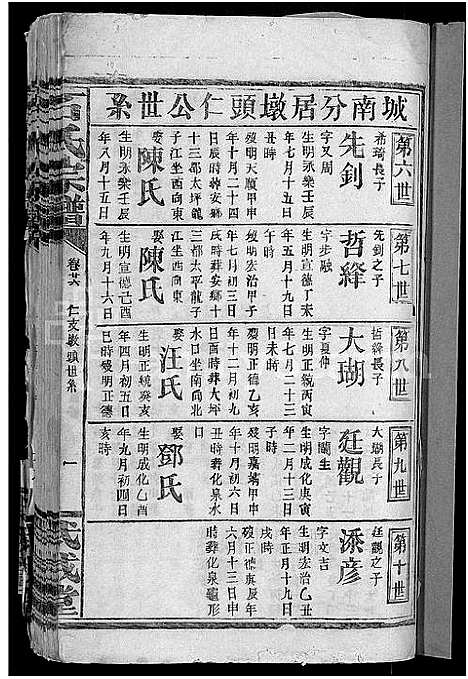 城南分居墩頭仁公世系
第六世
希琦長子
先釗
字又周
生明永樂壬辰
年七月十五日
丑時
歿明天順甲申
年十月二十四
日辰時葬安鄉
十三都太坪龍
子江坐西向東
娶陳氏
生明永樂壬辰
年八月十五日
第七世
先釗之子
哲絳
字步融
生明宣德丁未
年五月十九日
時
歿明宏治甲子
年七月初三日
時葬安鄉十
三都太平龍子
江坐西向東
娶陳氏
生明宣德己酉
年九月十六日
第八世
哲絳長子
大瑚
字夏伸
生明正統丙寅
年二月二十三
日未時
歿明正德乙亥
年十二月初九
日酉時葬大坪
水口坐南向北
娶汪氏
生明正統癸亥
年四月初五日
巳時歿明正德
第九世
大瑚長子
廷觀
字蘭生
生明成化庚寅
年二月十三日
時
歿明嘉靖甲申
年十月初六日
丑時葬化泉水
口
娶鄧氏
生明成化乙酉
年九月初四日
亥時
第十世
廷觀之子
添彥
字文吉
生明宏治乙丑
年正月十九日
戌時
歿正德庚辰年
六月十三日申
時葬化泉龜形
氏宗譜
卷廿六
仁支墩頭世系
一
武威堂